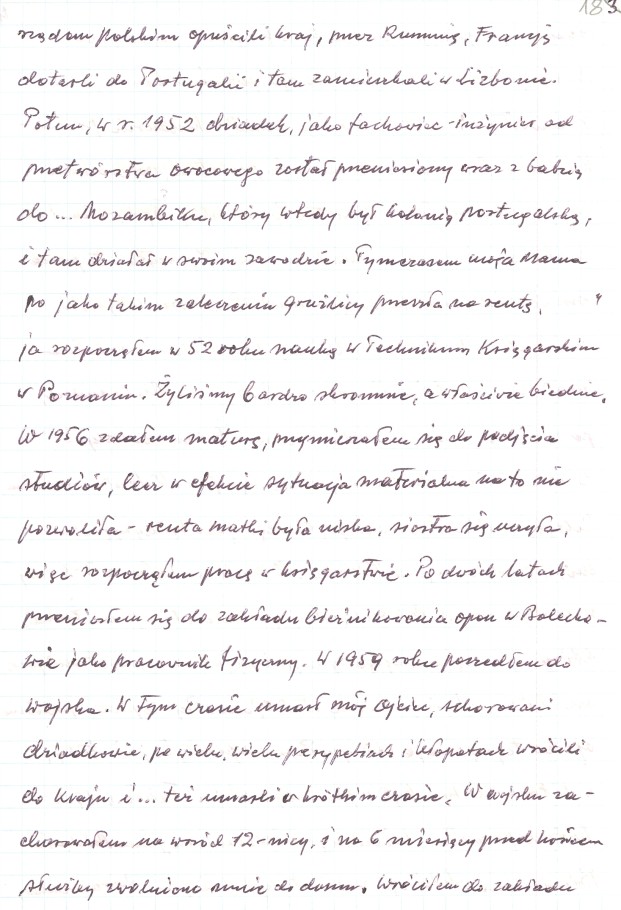 183.
rządem polskim opuścili kraj, przez Rumunię, Francję
dotarli do Portugalii i tam zamieszkali w Lizbonie.
Potem, w r. 1952 dziadek, jako fachowiec-inżynier od
przetwórstwa owocowego został przeniesiony wraz z babcią
do... Mozambiku, który wtedy był kolonią portugalską,
i tam działał w swoim zawodzie. Tymczasem moja Mama
po jako takim zaleczeniu gruźlicy przeszła na rentę,
ja rozpocząłem w 52 roku naukę w Technikum Księgarskim
w Poznaniu. Żyliśmy bardzo skromnie, a właściwie biednie.
W 1956 zdałem maturę, przymierzałem się do podjęcia
studiów, lecz w efekcie sytuacja materialna na to nie
pozwoliła - renta matki była niska, siostra się uczyła,
więc rozpocząłem pracę w księgarstwie. Po dwóch latach
przeniosłem się do zakładu bieżnikowania opon w Bolecho-
wie jako pracownik fizyczny. W 1959 roku poszedłem do
wojska. W tym czasie umarł mój Ojciec, schorowani
dziadkowie, po wielu, wielu perypetiach i kłopotach wrócili
do kraju i... też umarli w krótkim czasie. W wojsku za-
chorowałem na wrzód 12-nicy, i na 6 miesięcy przed końcem
służby zwolniono mnie do domu. Wróciłem do zakładu